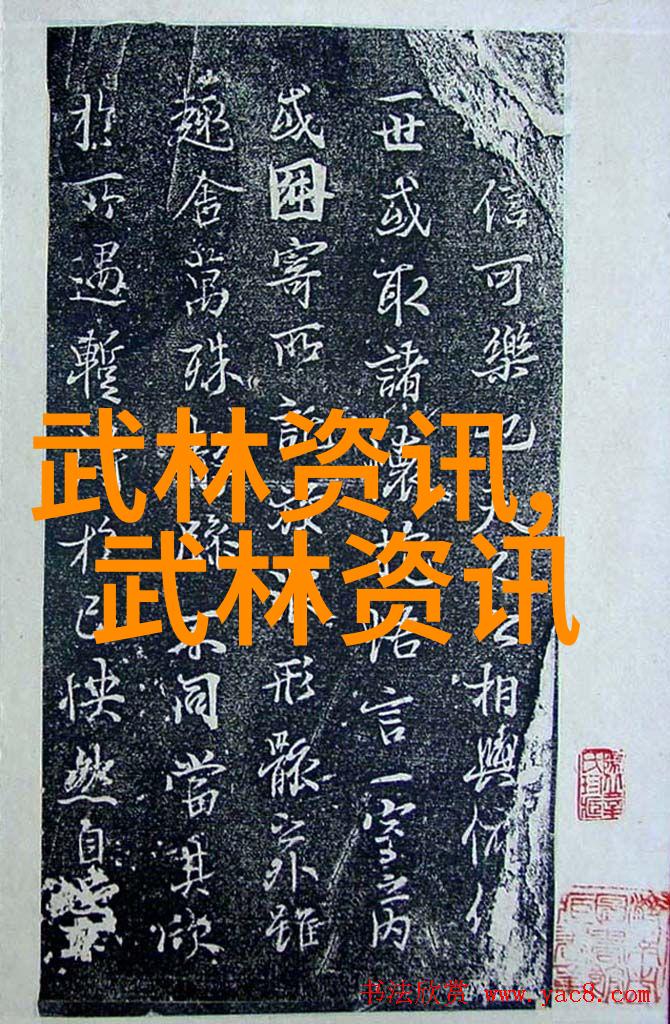 信可樂也夫人之相與俯仰
一世或取諸懷抱悟言一室之内
或因寄所託放浪形骸之外雖
趣舍萬殊靜躁不同當其欣
於所遇暫得於己怏然自
武林资讯,
武林资讯
书法欣赏 www.yac8.com